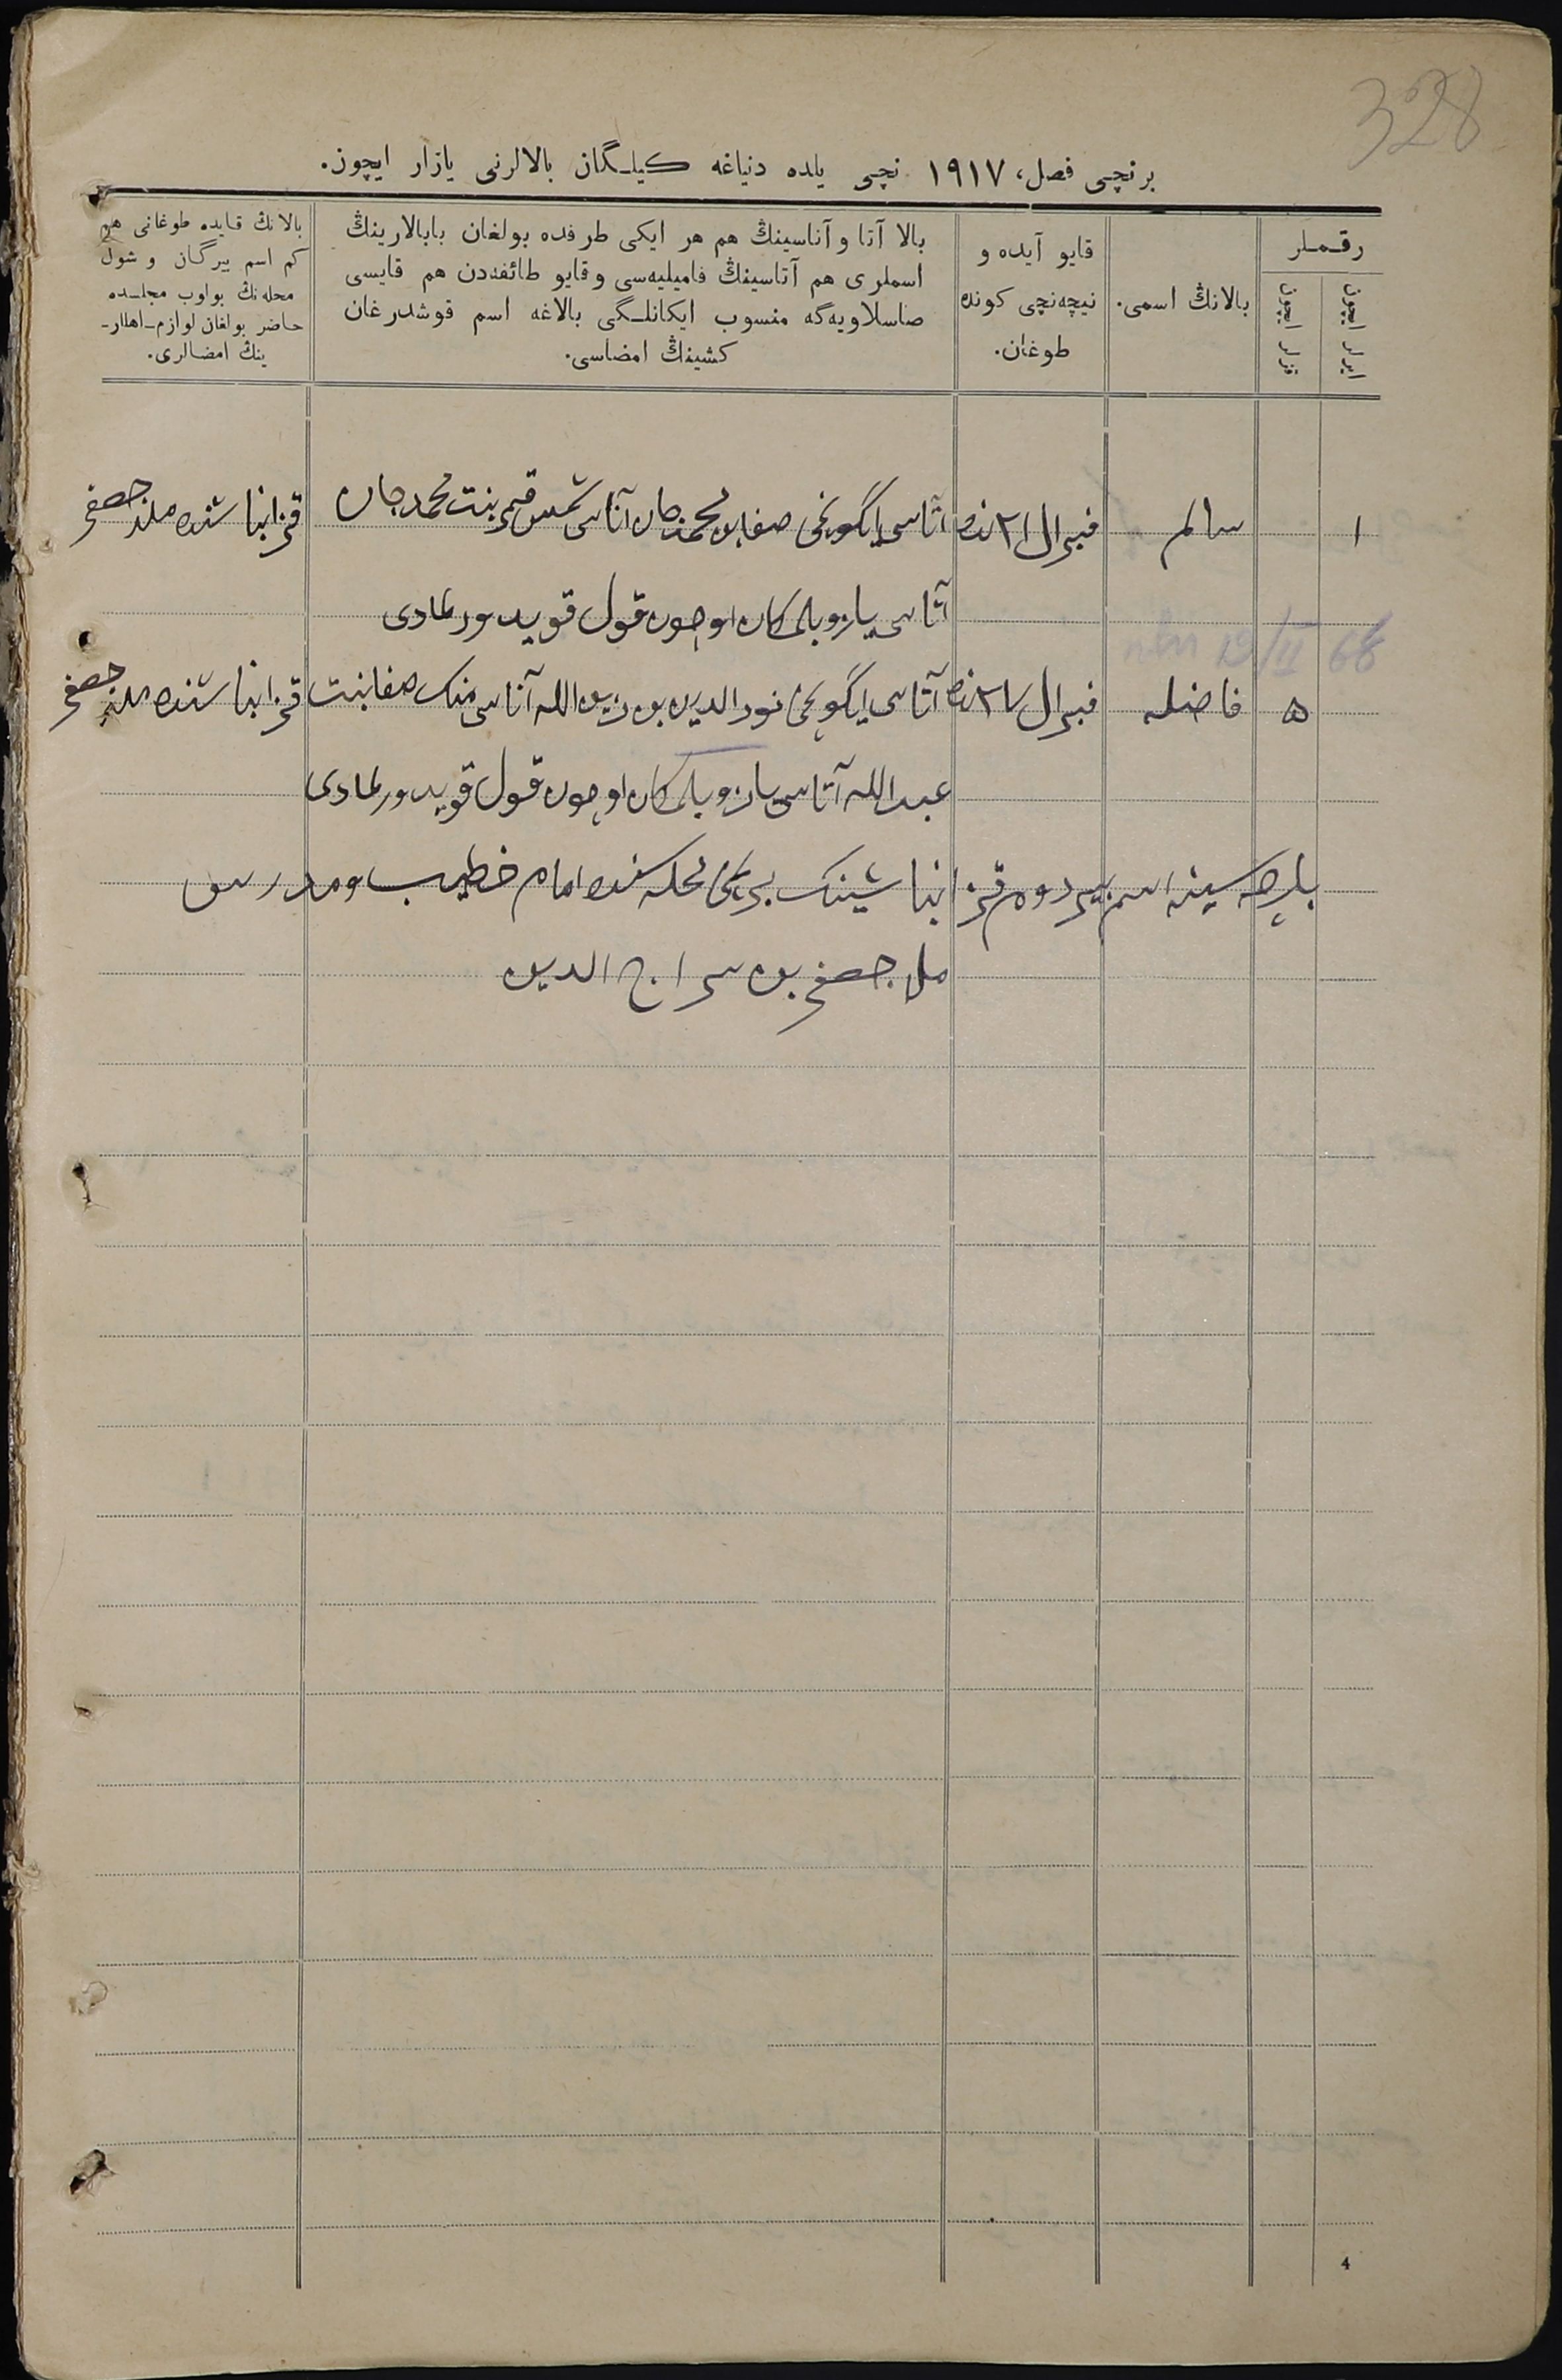 328
برنچی فصل، ١٩١٧ نچی یلده دنیاغه کیلگان بالالرنی یازار ایچون.
رقملر
ایرلر ایچون
قزلر ایچون
بالانڭ اسمی.
قایو آیده و
نیچه‌نچی کونده
طوغان.
بالا آتا و آناسینڭ هم هر ایکی طرفده بولغان بابالارینڭ
اسملری هم آتاسینڭ فامیلیه‌سی و قایو طائفه‌دن هم قایسی
صاسلاویه‌گه منسوب ایکانلگی بالاغه اسم قوشدرغان
کشینڭ امضاسی.
بالانڭ قایده طوغانی هم
کم اسم بیرگان و شول
محله‌نڭ بولوب مجلسده
حاضر بولغان لوازم اهللر-
ینڭ امضالری.
١ سالم فبرال ٢١ نده آتاسی ایگونچی صفا بن محمدجان آناسی شمس قمر بنت محمدجان قزانباشنده ملا جعفر
آتاسی یازو بلمکان اوچون قول قویدورلمادی
68 19/II
٥ فاضله فبرال ٢٧ نده آتاسی ایگونچی نورالدین بن زین الله آناسی منک صفا بنت قزانباشنده ملا جعفر
عبدالله آتاسی یازو بلمکان اوچون قول قویدورلمادی
بارچه‌سینه اسم بیردوم قزانباشینک برنچی محله‌سنده امام خطیب و مدرس
ملا جعفر بن سراج الدین
4